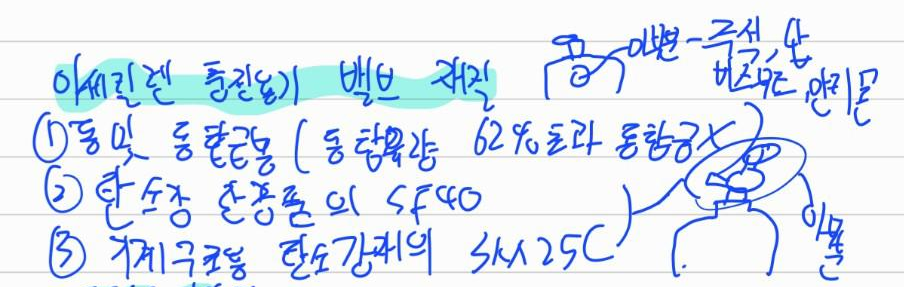 아세틸렌 충전용기 밸브 재질
가용전 - 주석, 납
비스무트, 안티몬
① 동 및 동합금 (동함유량 62% 초과 동합금X)
② 탄소강 단공품의 SF40
③ 기계구조용 탄소강재의 SM25C